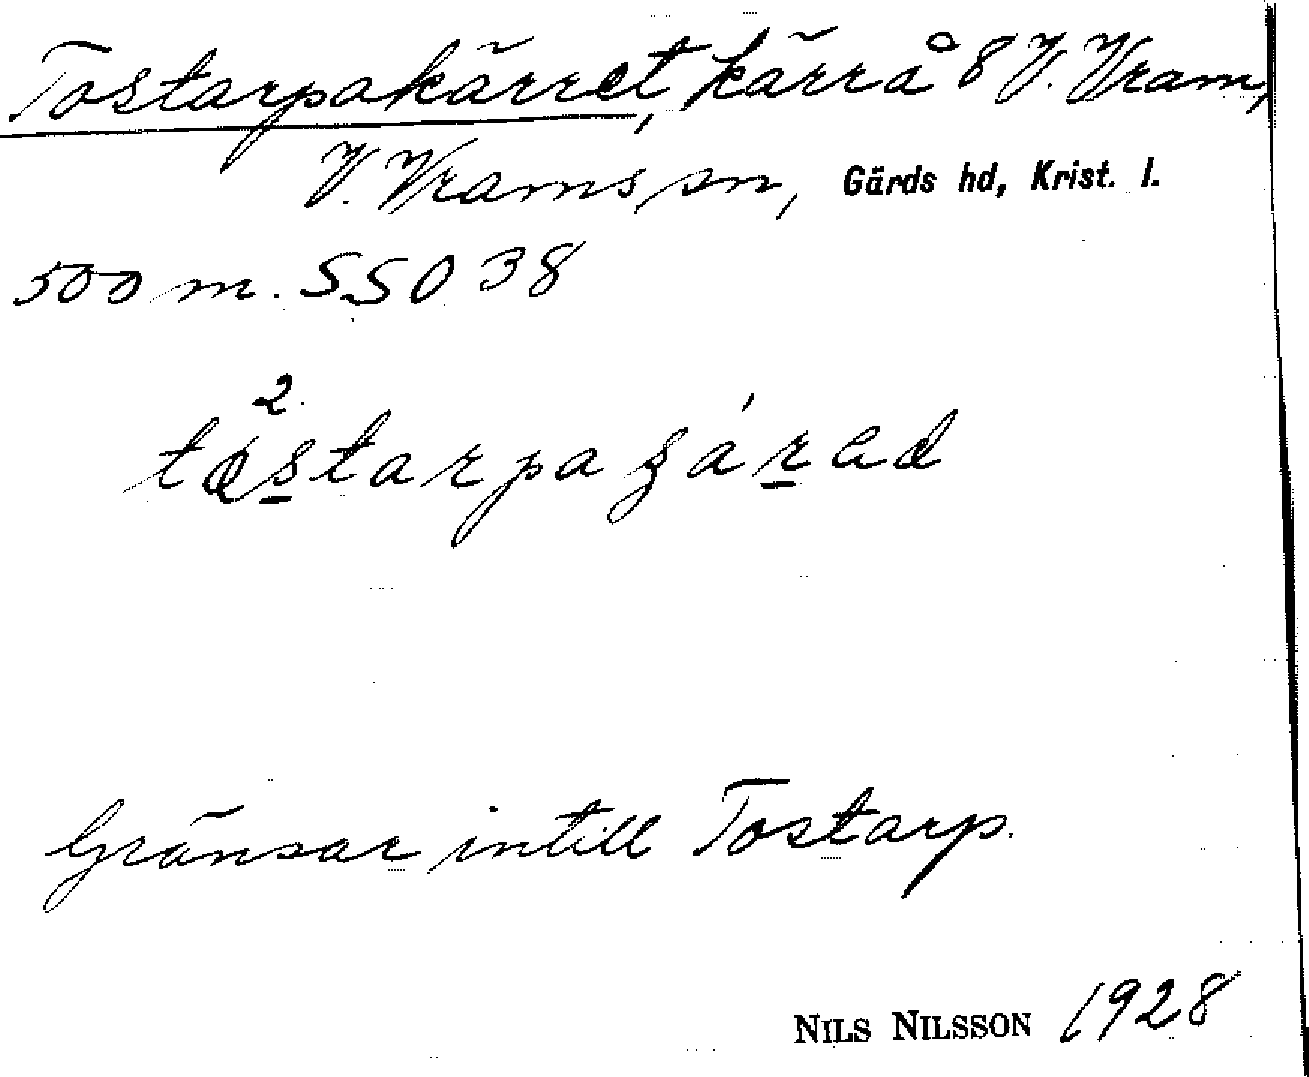 Tostarpakärret, kärr å 8 V. Vram,
V. Vrams sn, Gärds hd, Krist. l.
500 m. SSO 38
Gränsar intill Tostarp.
NILS NILSSON 1928